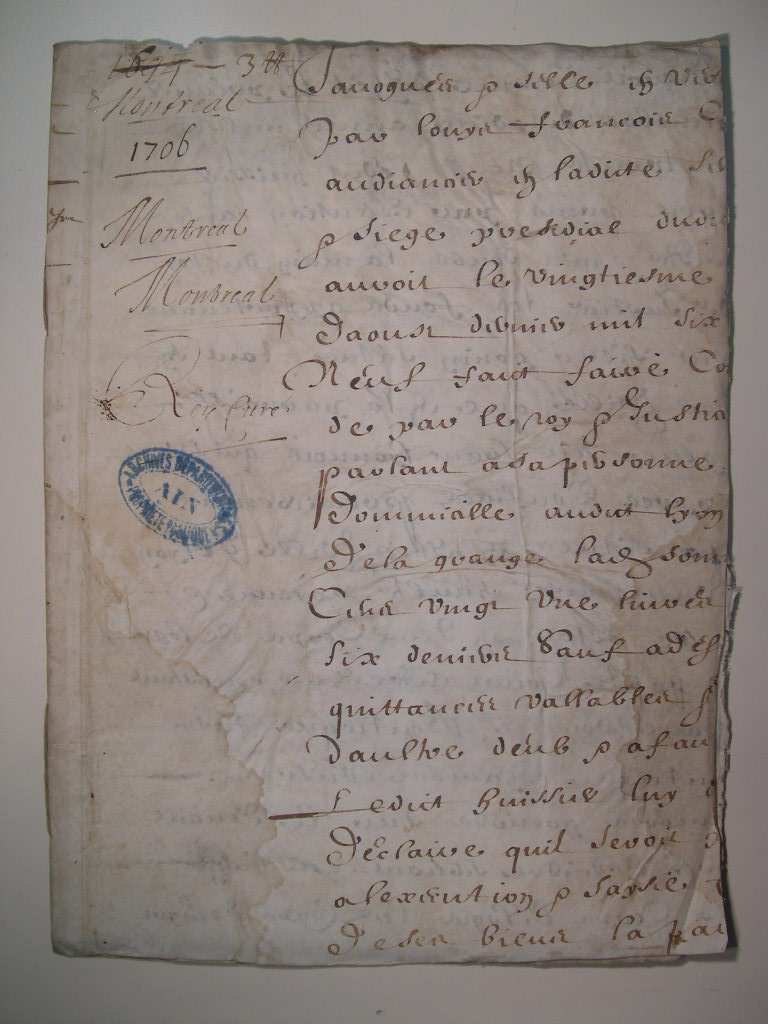 3tt
Montreal
1706
Montreal
Montreal
ARCHIVES DEPARTEMENTALES
AIN
par louys francois
audiancier en ladicte
& siege presidial dud
auroit le vingtiesme
daoust dernier mil six
Neuf faict faire Co
de par le roy & Justice
parlant a sa personne
Dommicille audict lyon
De la grange lad som
Cens vingt une livres
six deniers Sauf a des
quittances vallables
daultre deub & a fau
Ledict huissier luy
Declaire quil seroit
a lexecution & saysie
De ses biens la par